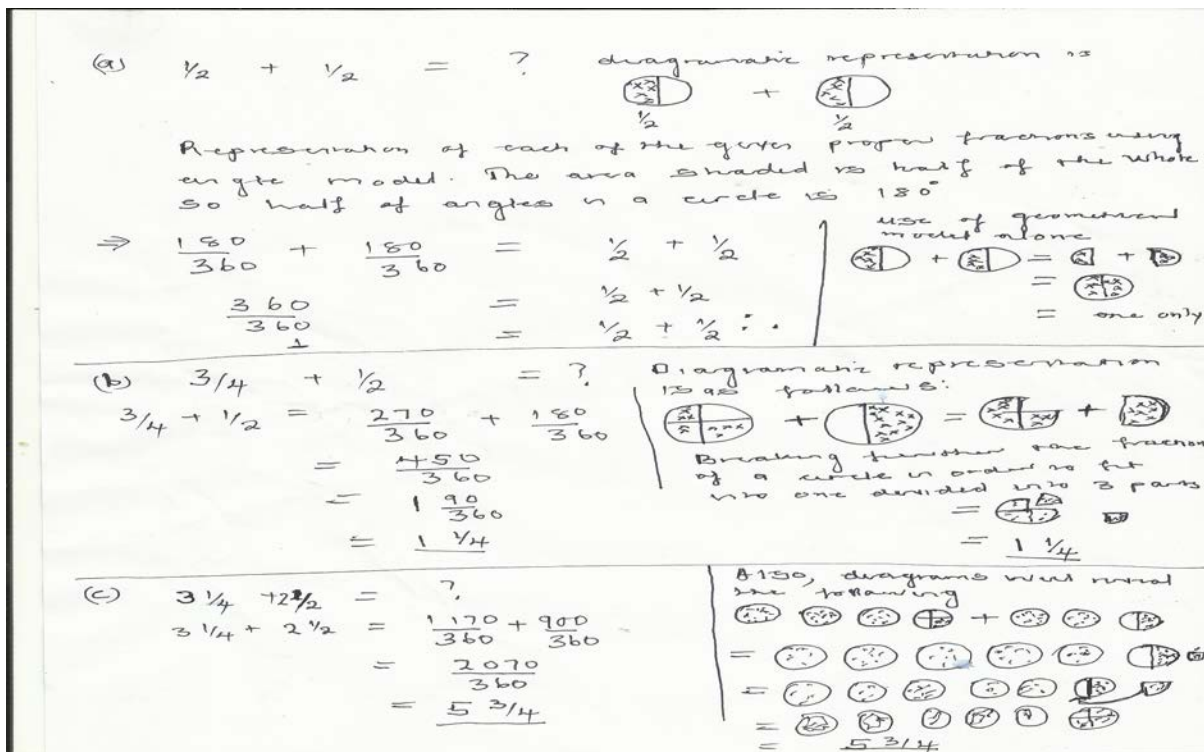 (a) 1/2 + 1/2 = ? diagramatic representation is
+
1/2 1/2
Representation of each of the given proper fractions using
angle model. The area shaded is half of the whole
so half of angles in a circle is 180°
⇒ 180/360 + 180/360 = 1/2 + 1/2
360/360 = 1/2 + 1/2
1 = 1/2 + 1/2 ∴
use of geometrical
model alone
+ = +
=
= one only
(b) 3/4 + 1/2 = ?
3/4 + 1/2 = 270/360 + 180/360
= 450/360
= 1 90/360
= 1 1/4
Diagramatic representation
is as follows:
+ = +
Breaking further the fraction
of a circle in order to fit
into one devided into 3 parts
=
= 1 1/4
(c) 3 1/4 + 2 1/2 = ?
3 1/4 + 2 1/2 = 1170/360 + 900/360
= 2070/360
= 5 3/4
Also, diagrams will reveal
the following
+
=
=
=
= 5 3/4